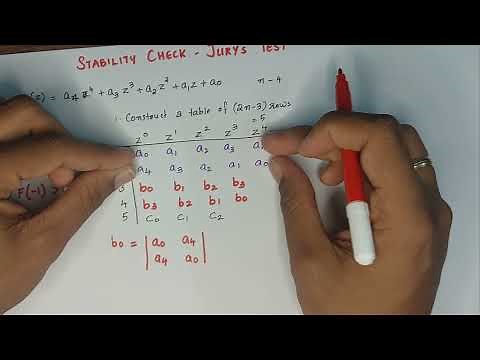 STABILITY CHECK - JURYS TEST
(z) = a4 z^4 + a3 z^3 + a2 z^2 + a1 z + a0 n-4
1. Construct a table of (2n-3) rows
= 5
z^0 z^1 z^2 z^3 z^4
a0 a1 a2 a3 a
a4 a3 a2 a1 a0
F(-1) > 3 b0 b1 b2 b3
4 b3 b2 b1 b0
5 c0 c1 c2
b0 = | a0 a4 |
| a4 a0 |